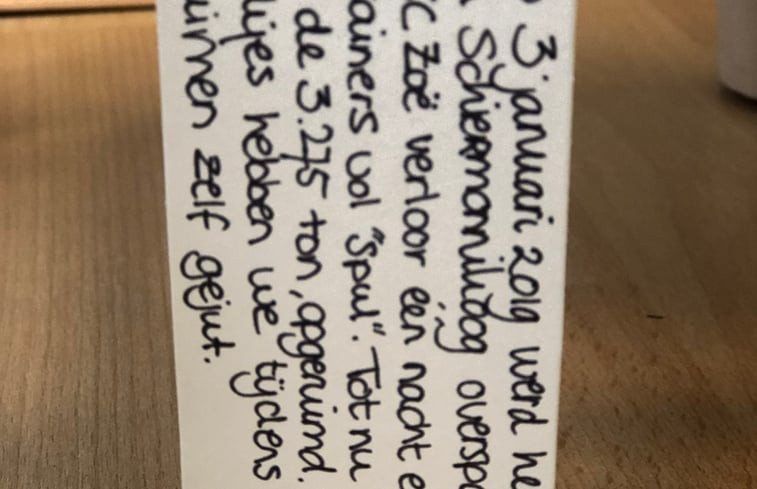 3 januari 2019 werd he
Schiermonikoog overspo
C Zoë verloor één nacht e
ainers vol "Spul". Tot nu
de 3.275 ton, opgeruimd.
lijes hebben we tijdens
uinen zelf gejut.